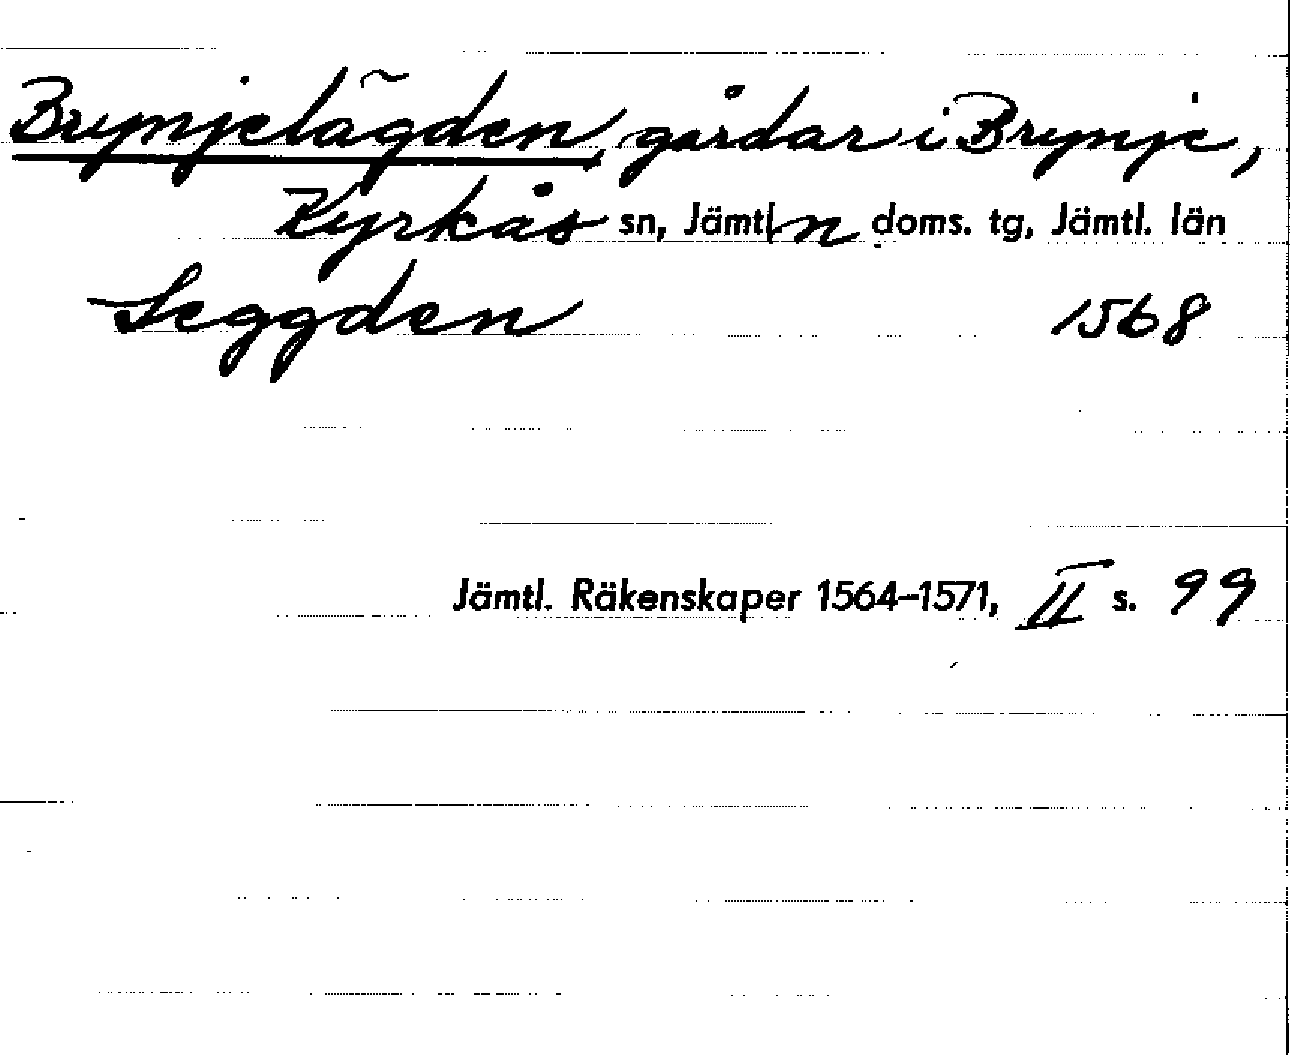 Brynjelägden, gårdar i Brynje,
Kyrkås sn, Jämtl n doms. tg, Jämtl. län
Leggden 1568
Jämtl. Räkenskaper 1564–1571, II s. 99